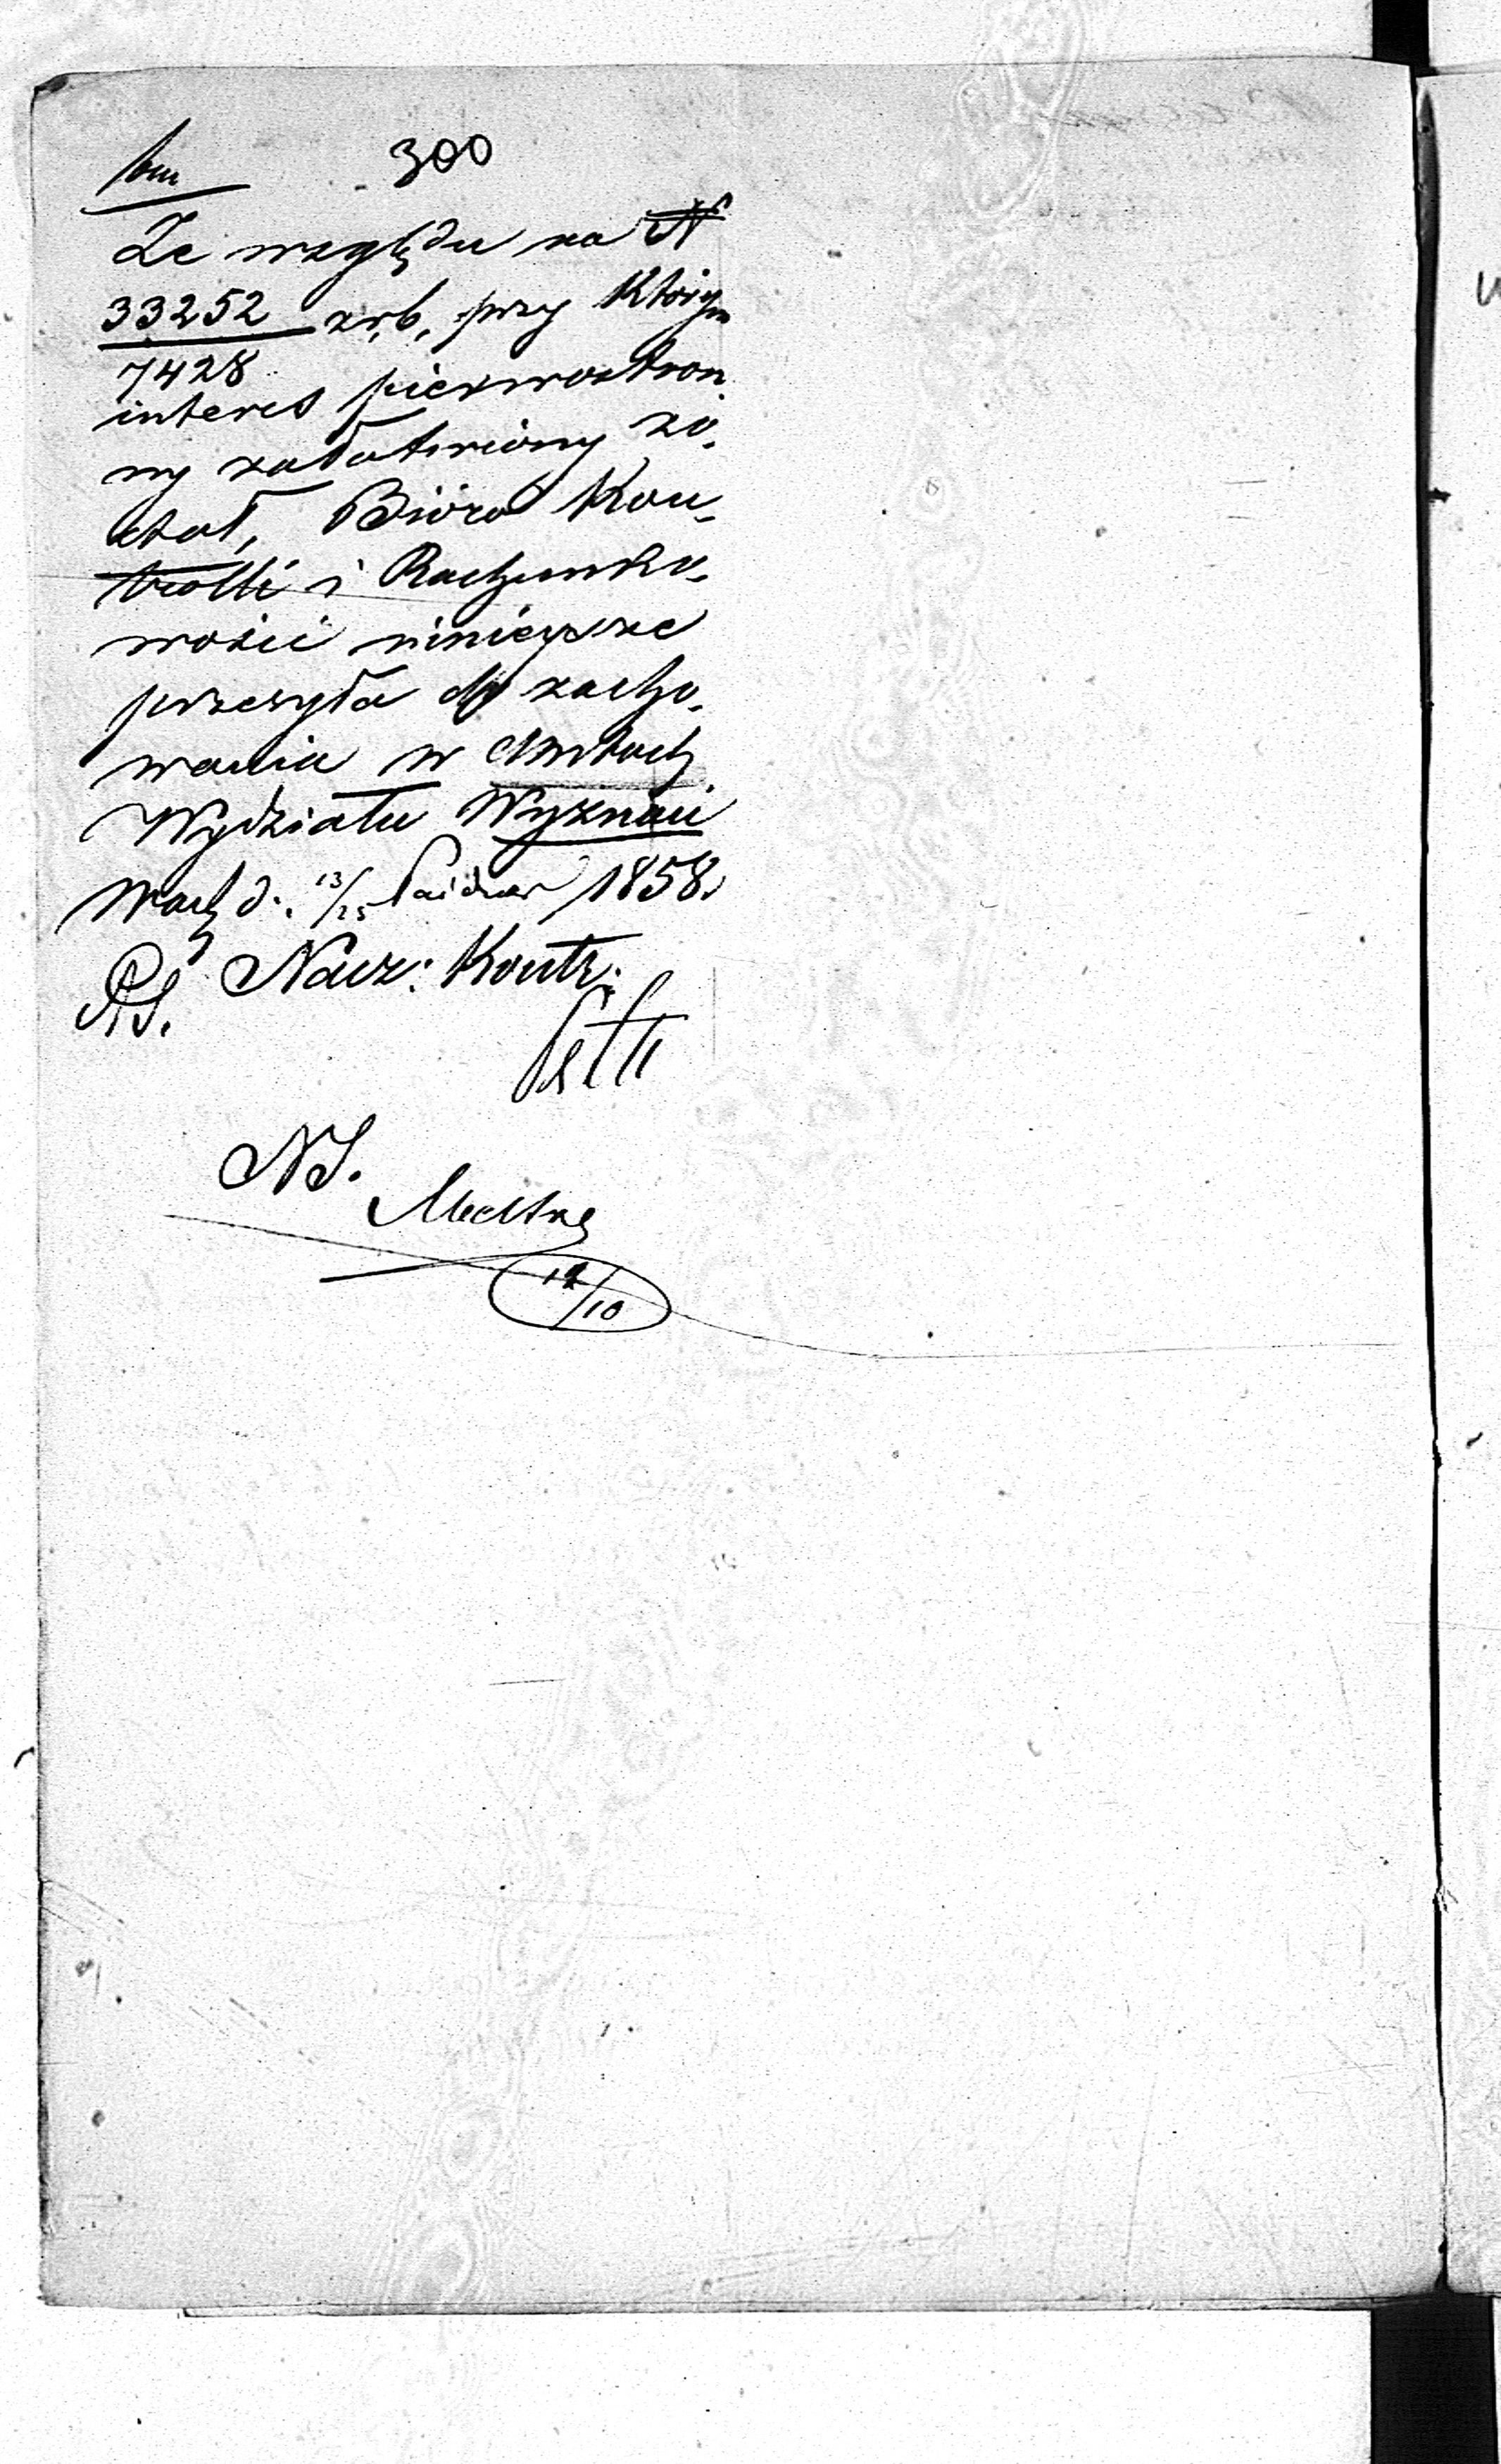 300
Ze względu na N
33252 z r. b. przy którym
7428
interes pierwostron
ny załatwiony zo
stał, Bióro Kon
trolli i Rachunko
wości niniejsze
przesyła do zacho
wania w Aktach
Wydziału Wyznań
d. 13/25 Paidzier 1858.
Nacz: Kontr:
NS.
12/10